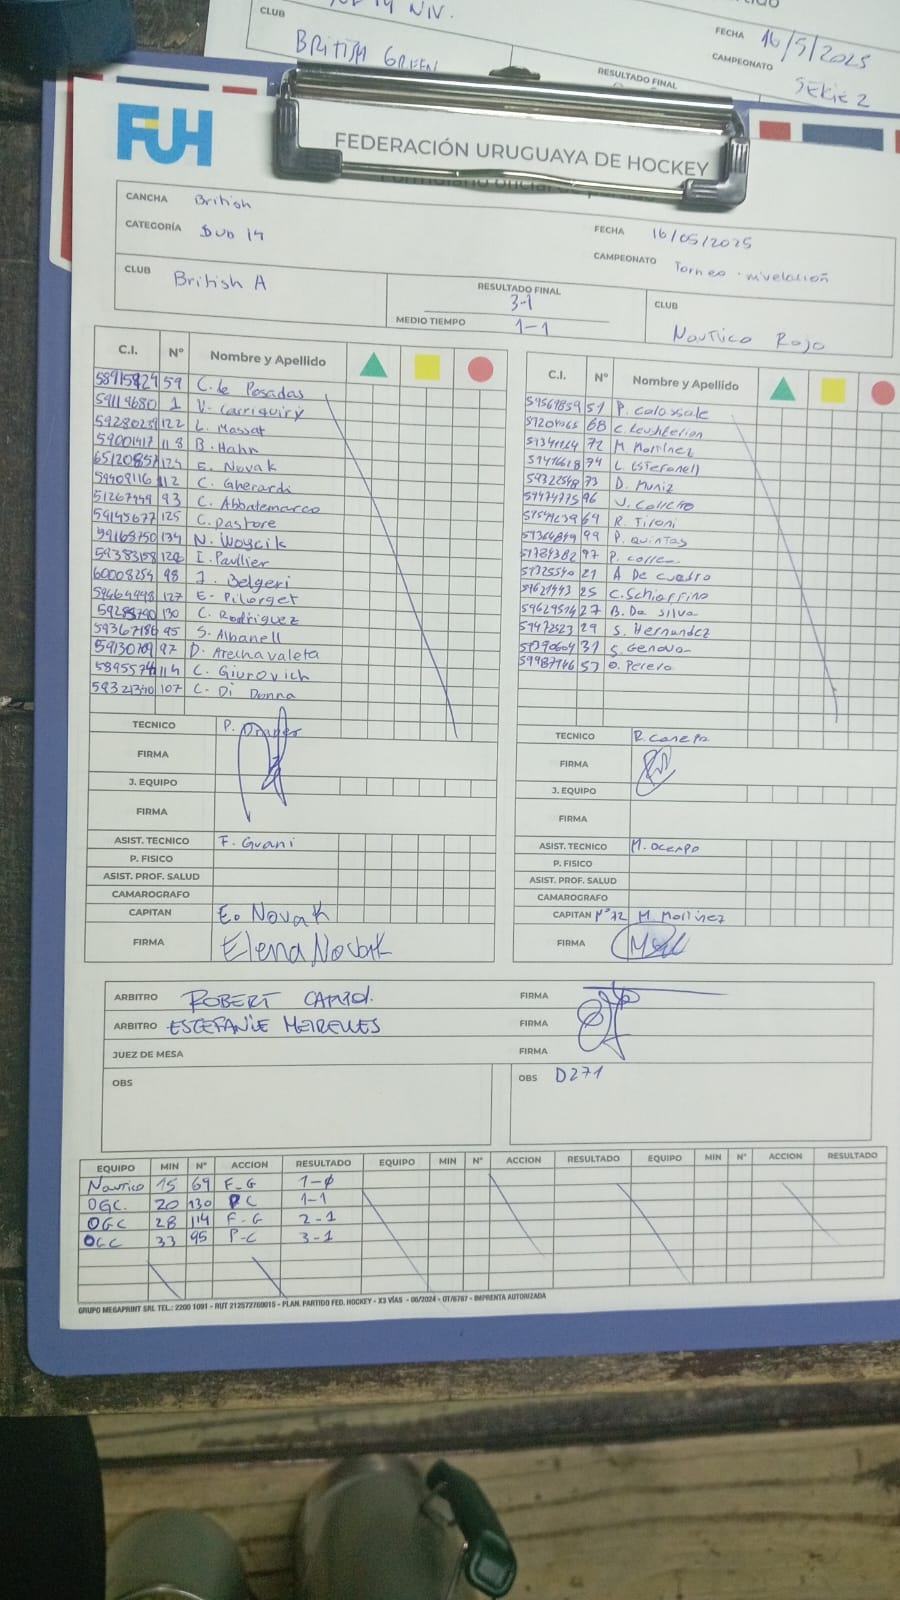 CLUB
BRITISH GREEN
RESULTADO FINAL
FECHA 16/5/2025
CAMPEONATO
SERIE 2
FUH
FEDERACIÓN URUGUAYA DE HOCKEY
CANCHA British
CATEGORÍA Sub 14
FECHA 16/05/2025
CAMPEONATO Torneo nivelación
CLUB British A
RESULTADO FINAL 3-1
MEDIO TIEMPO 1-1
CLUB Nautico Rojo
C.I. Nº Nombre y Apellido
59 C. de Posadas
59119680 1 V. Carriquiry
122 L. Massat
59001417 118 B. Hahn
E. Novak
59408116 112 C. Gherardi
51267449 93 C. Abbatemarco
59145677 125 C. Pastore
59168750 134 N. Woycik
59383158 I. Paullier
60008254 98 J. Belgeri
59464498 127 E. Pilorget
130 C. Rodriguez
59367186 95 S. Albanell
59130709 97 D. Arechavaleta
114 C. Giurovich
59321340 107 C. Di Donna
TECNICO
FIRMA
J. EQUIPO
FIRMA
ASIST. TECNICO F. Guani
P. FISICO
ASIST. PROF. SALUD
CAMAROGRAFO
CAPITAN E. Novak
FIRMA Elena Novak
C.I. Nº Nombre y Apellido
59569859 51 P. Calossale
68
72 M Martinez
74 L Esteronell
59322548 73 D. Muniz
96
69 R. Tironi
99 P. Quintas
97
21 A De Cuadro
59621443 25 C. Schiaffino
59629514 27 B. Da Silva
59472523 29 S. Hernandez
31 S. Genova
59987146 53
TECNICO R. Canepa
FIRMA
J. EQUIPO
FIRMA
ASIST. TECNICO M. Ocampo
P. FISICO
ASIST. PROF. SALUD
CAMAROGRAFO
CAPITAN Nº72 M. Martinez
FIRMA
ARBITRO ROBERT
FIRMA
ARBITRO ESTEFANIE MEIRELLES
FIRMA
JUEZ DE MESA
FIRMA
OBS
OBS D271
EQUIPO MIN Nº ACCION RESULTADO EQUIPO MIN Nº ACCION RESULTADO EQUIPO MIN Nº ACCION RESULTADO
Nautico 15 69 F-G 1-0
OGC. 20 130 PC 1-1
OGC 28 114 F-G 2-1
OGC 33 95 P-C 3-1
GRUPO MEGAPRINT SRL TEL.: 2200 1091 - RUT 212572760015 - PLAN. PARTIDO FED. HOCKEY - X3 VÍAS - 06/2024 - OT/6767 - IMPRENTA AUTORIZADA